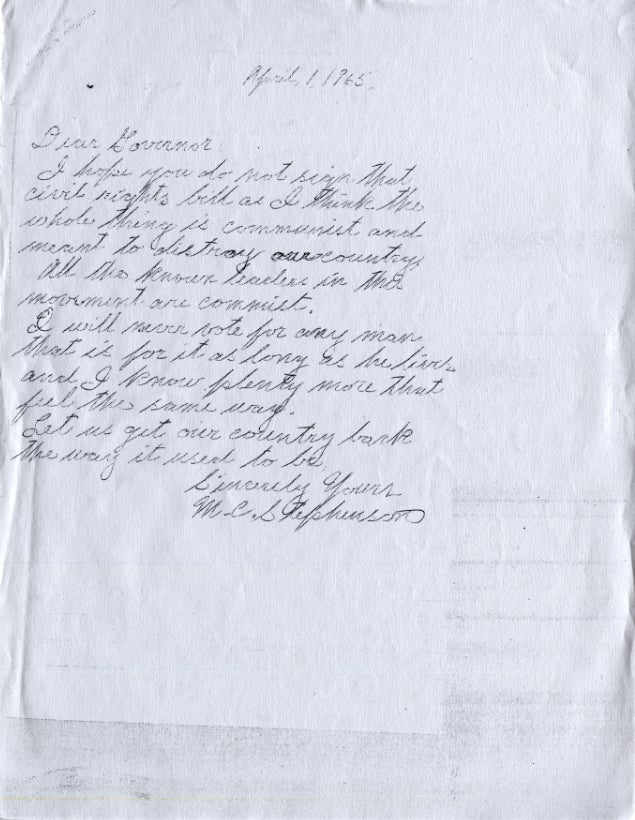 April, 1, 1965.
Dear Governor:
I hope you do not sign that
civil rights bill as I think the
whole thing is communist and
meant to distroy our country.
All the known leaders in this
movement are commist.
I will never vote for any man
that is for it as long as he lives
and I know plenty more that
feel the same way.
Let us get our country bark
the way it used to be.
Sincerely Yours
M. C. Stephenson